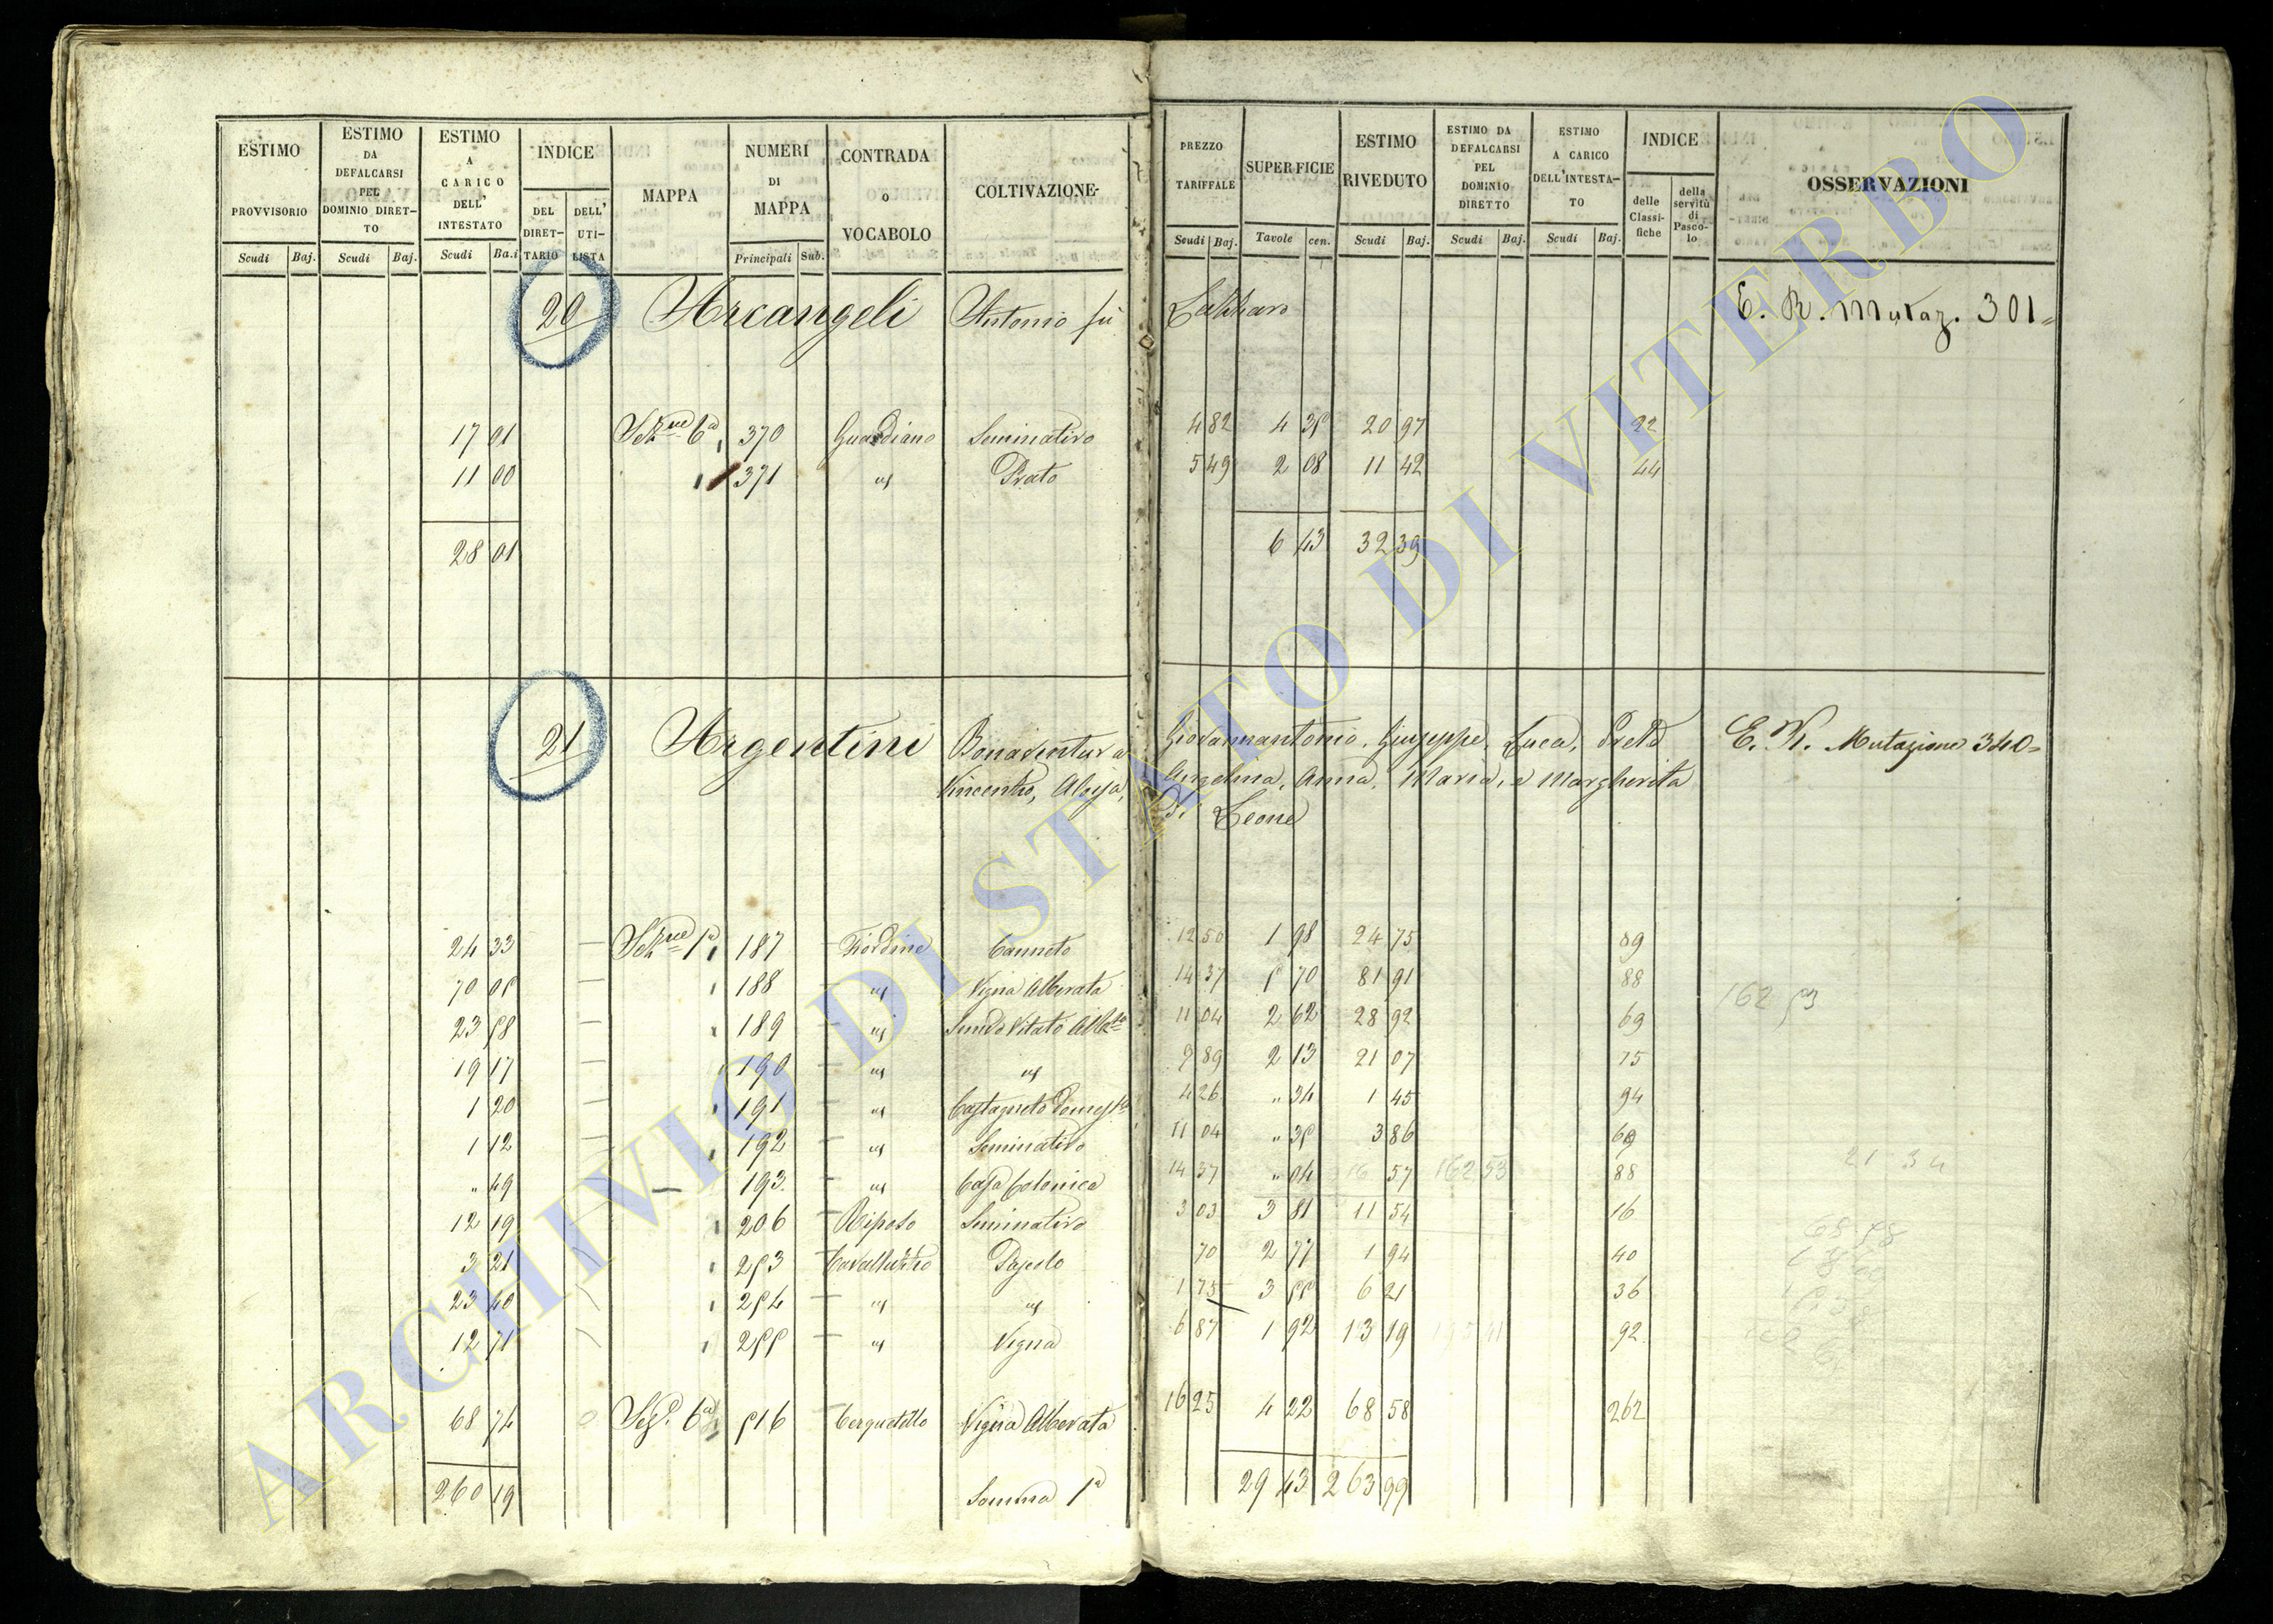 ESTIMO PROVVISORIO Scudi Baj.
ESTIMO DA DEFALCARSI PEL DOMINIO DIRETTO Scudi Baj.
ESTIMO A CARICO DELL' INTESTATO Scudi Ba.i
INDICE DEL DIRETTARIO DELL' UTILISTA
MAPPA
NUMERI DI MAPPA Principali Sub.
CONTRADA o VOCABOLO
COLTIVAZIONE
PREZZO TARIFFALE Scudi Baj.
SUPERFICIE Tavole cen.
ESTIMO RIVEDUTO Scudi Baj.
ESTIMO DA DEFALCARSI PEL DOMINIO DIRETTO Scudi Baj.
ESTIMO A CARICO DELL'INTESTATO Scudi Baj.
INDICE delle Classifiche della servitù di Pascolo
OSSERVAZIONI
20 Arcangeli Antonio fu E. R. Mutaz. 301
17 91 Sezne 6a 370 Guardiano Seminativo 4 82 4 35 20 97 22
11 00 " 371 " Prato 5 49 2 08 11 42 44
28 01 6 43 32 39
21 Argentini Bonaventura Giovannantonio, Giuseppe, Luca, E. R. Mutazione 340
Vincenzo, Aloisa, Angelina, Anna, Maria, e Margherita
Leone
24 33 Sezne 1a 187 Fiordine Canneto 12 50 1 98 24 75 89
70 05 188 " Vigna Alberata 14 37 5 70 81 91 88
162 53
23 58 189 " Semvo Vitato Albto 11 04 2 62 28 92 69
19 17 190 " " 9 89 2 13 21 07 75
1 20 191 " Castagneto Domesto 4 26 " 34 1 45 94
1 12 192 " Seminativo 11 04 " 35 3 86 69
" 49 193 " Casa Colonica 14 37 " 04 57 162 53 88
21 34
12 19 206 Riposo Seminativo 3 03 3 81 11 54 16
3 21 253 Pascolo 70 2 77 1 94 40
23 40 254 " " 1 75 3 55 6 21 36
12 71 255 " Vigna 6 87 1 92 13 19 92
68 74 Sez. 6a 516 Cerquetello Vigna Alberata 16 25 4 22 68 58 262
260 19 Somma 1a 29 43 263 99
ARCHIVIO DI STATO DI VITERBO